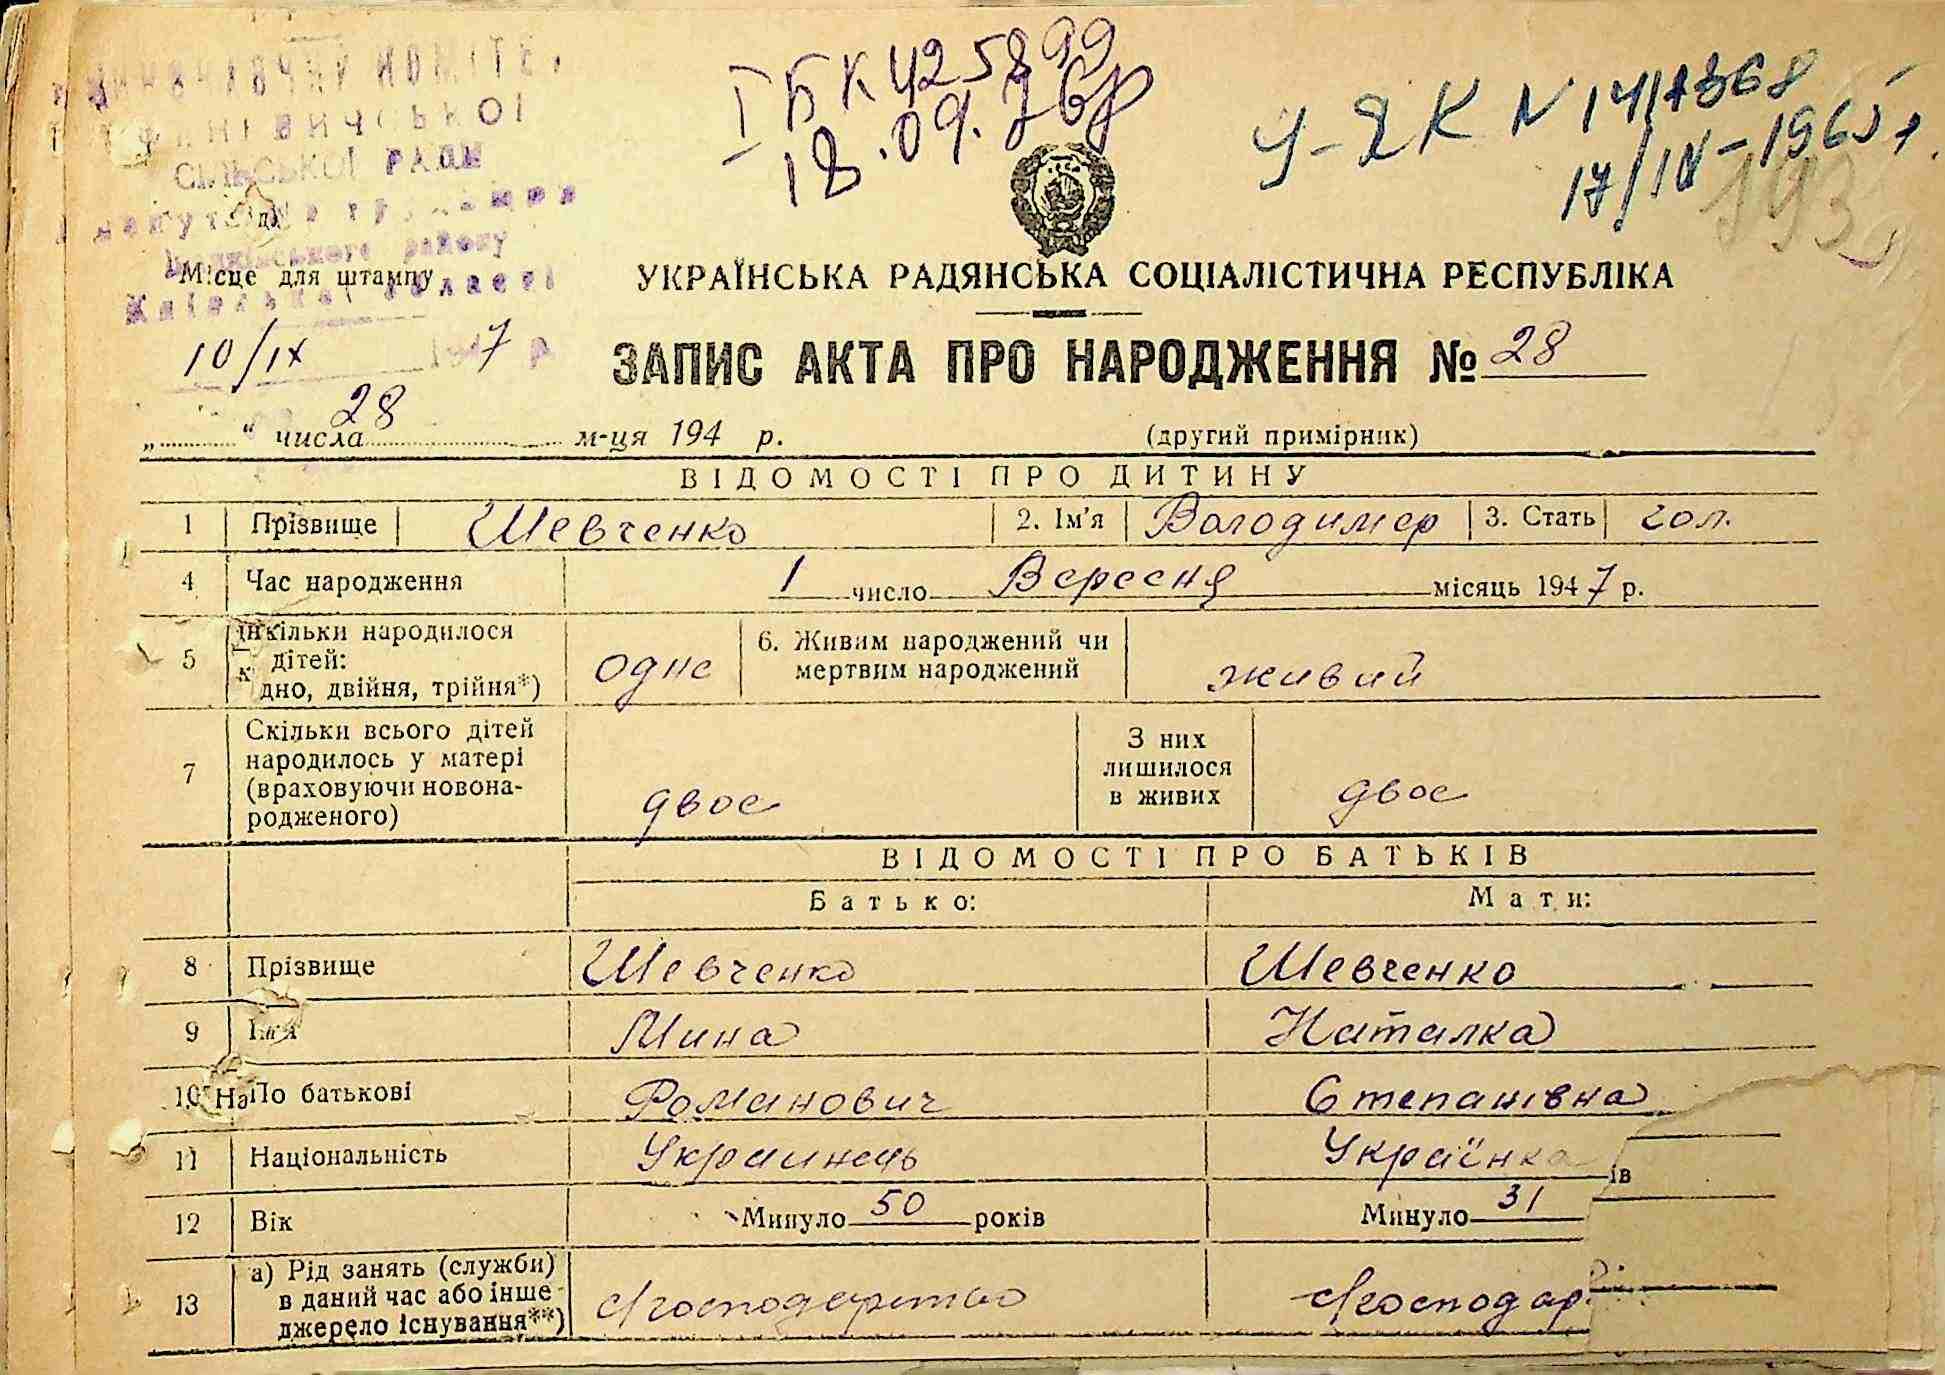 І БК 425899
18.09.76р
У-ЯК N
17/IV-1965р.
СІЛЬСЬКОЇ РАДИ
району
Місце для штампу
УКРАЇНСЬКА РАДЯНСЬКА СОЦІАЛІСТИЧНА РЕСПУБЛІКА
10/IX 1947 р.
ЗАПИС АКТА ПРО НАРОДЖЕННЯ № 28
28
„ “ числа м-ця 194 р. (другий примірник)
ВІДОМОСТІ ПРО ДИТИНУ
1 Прізвище Шевченко 2. Ім'я Володимер 3. Стать чол.
4 Час народження 1 число Вересня місяць 1947 р.
5 кільки народилося дітей: дно, двійня, трійня*) одне 6. Живим народжений чи мертвим народжений живий
7 Скільки всього дітей народилось у матері (враховуючи новонародженого) двое З них лишилося в живих двое
ВІДОМОСТІ ПРО БАТЬКІВ
Батько: Мати:
8 Прізвище Шевченко Шевченко
9 Ім'я Мина Наталка
10 По батькові Романович Степанівна
11 Національність Украинець Українка
12 Вік Минуло 50 років Минуло 31
13 а) Рід занять (служби) в даний час або інше джерело існування**)